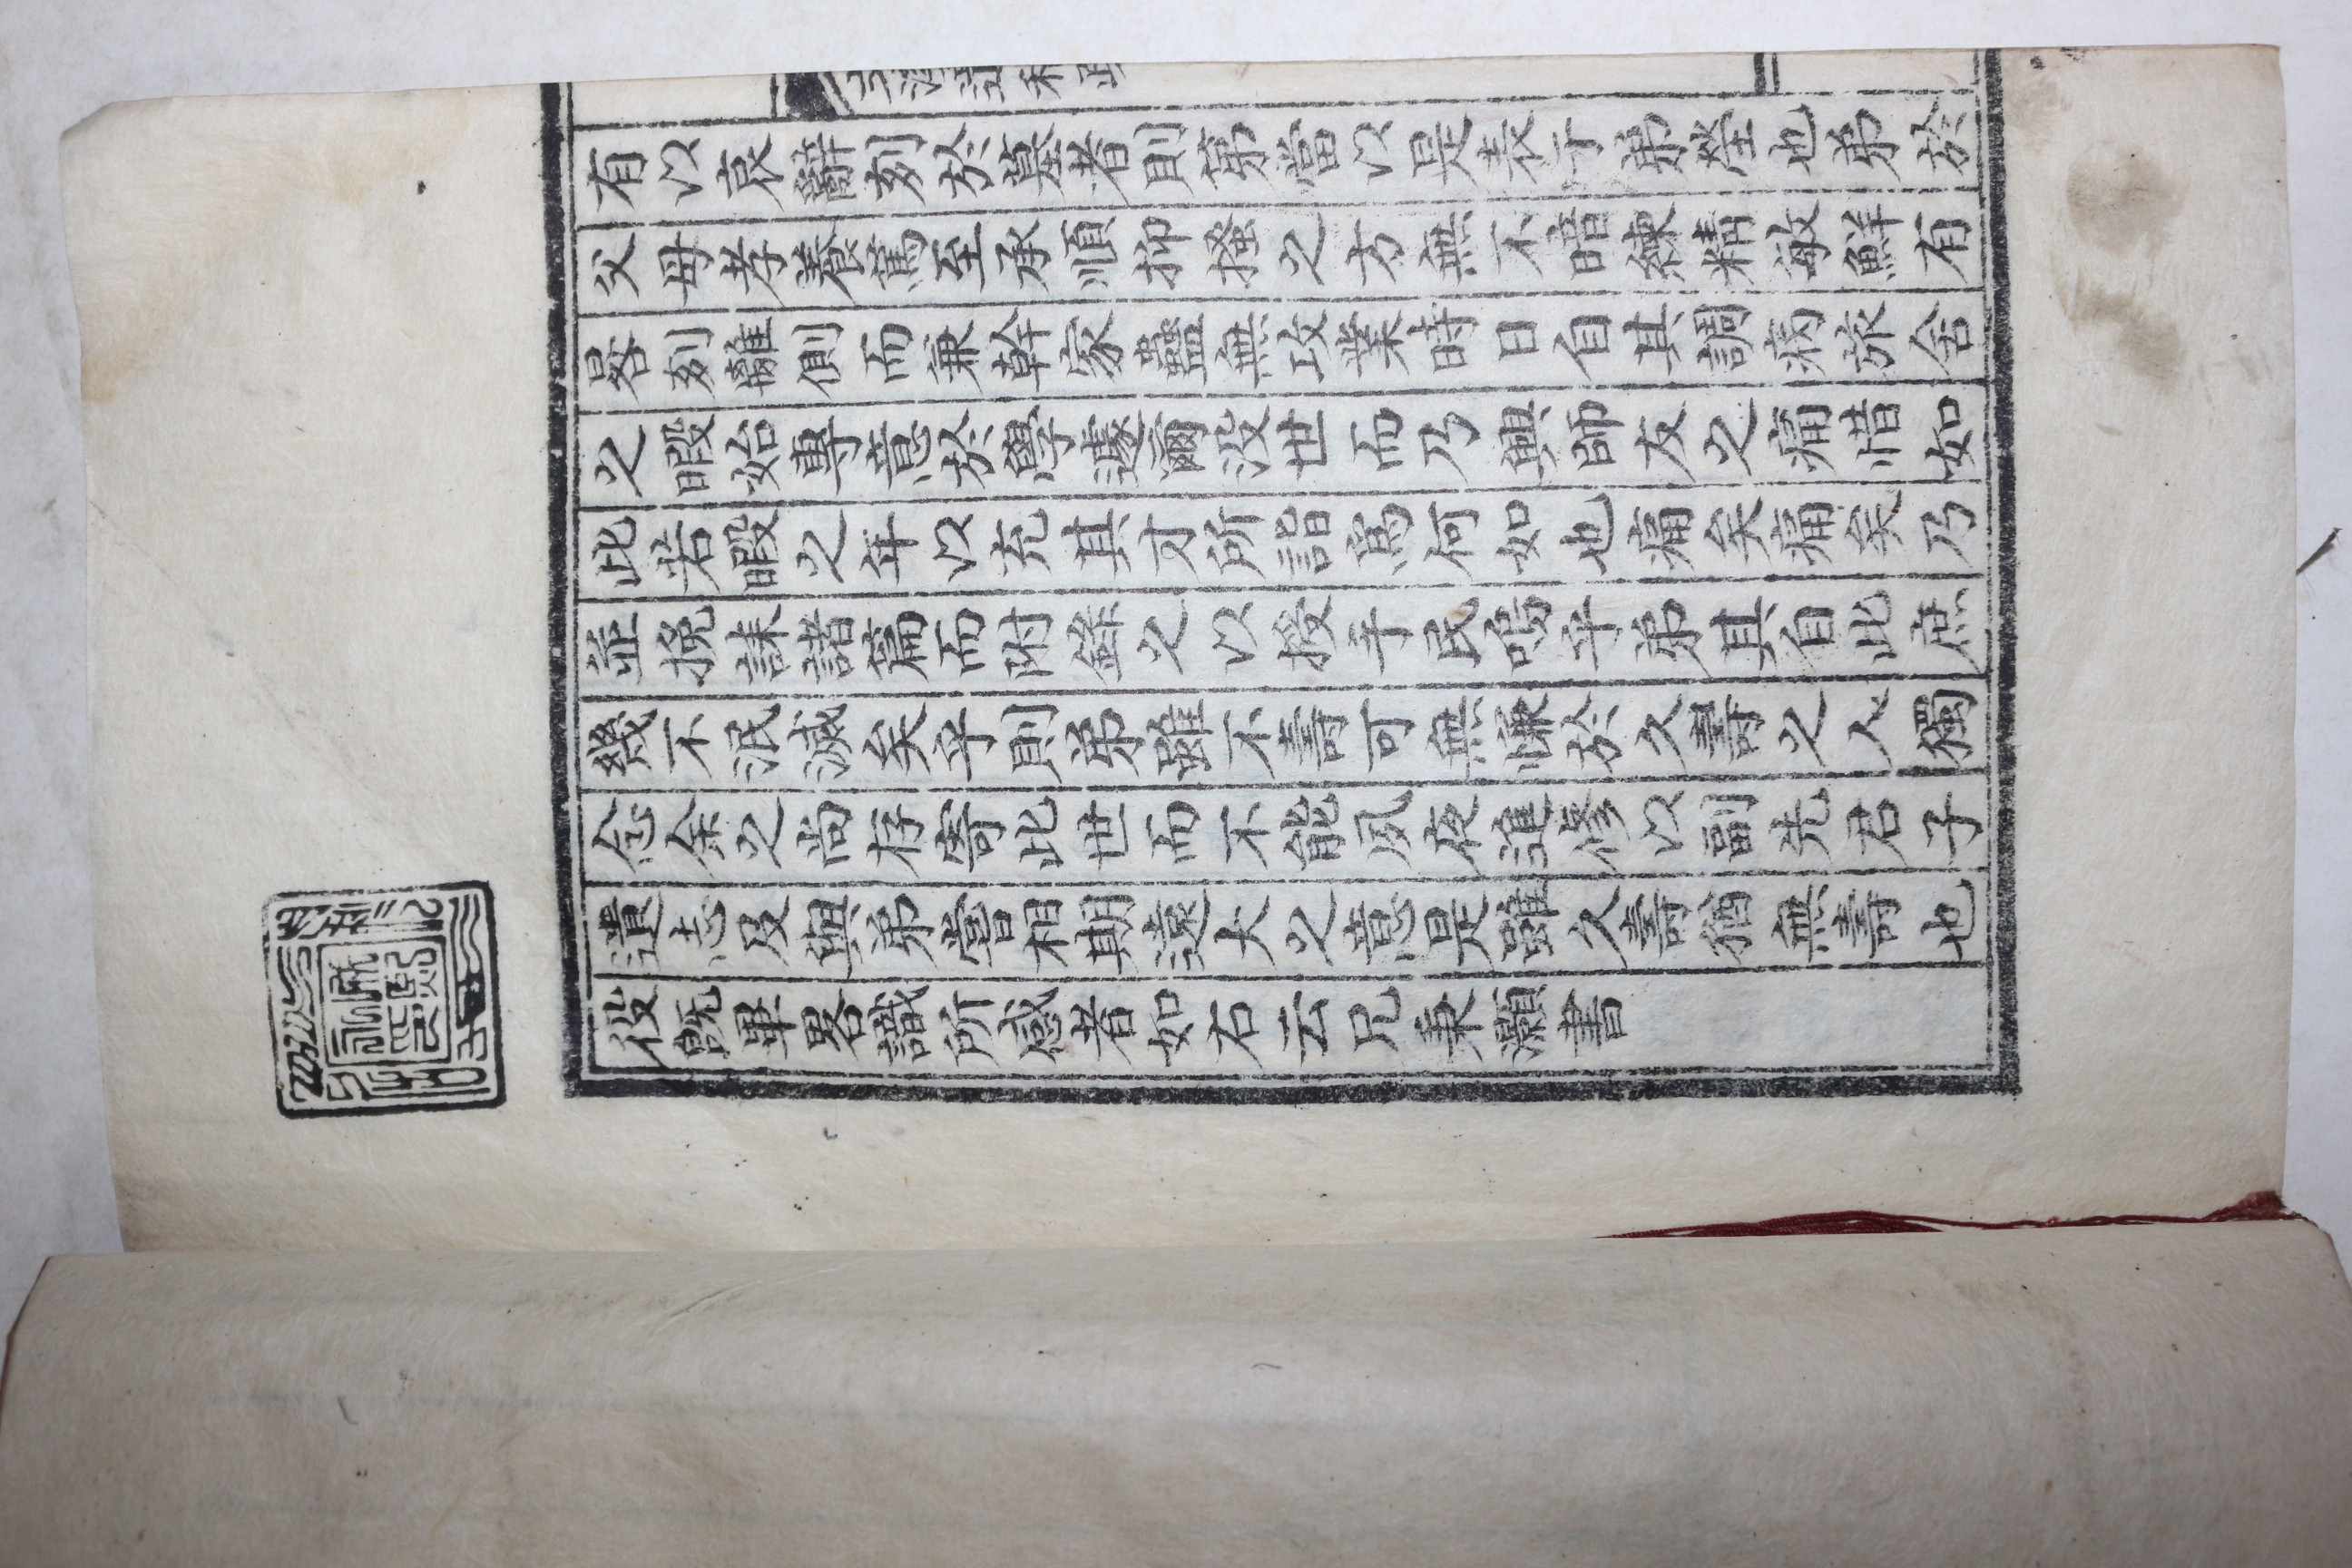 有以哀辭刻於墓者則弟當以是表于弟塋也弟於
父母孝養篤至承順抑搔之方無不諳練精敏鮮有
晷刻離側而兼幹家蠱無攻業時日自其調病旅舍
之暇始專意於學遽爾沒世而乃與師友之痛惜如
此若暇之年以充其才所詣爲何如也痛矣痛矣乃
並挽誄諸篇而附錄之以授手民嗚乎弟其自此庶
幾不泯滅矣乎則弟雖不壽可無慊於久壽之人獨
念余之尚存寄此世而不能夙夜進修以副先君子
遺志及與弟嘗相期遠大之意是雖久壽猶無壽也
役旣畢畧識所感者如右云兄秉灝書